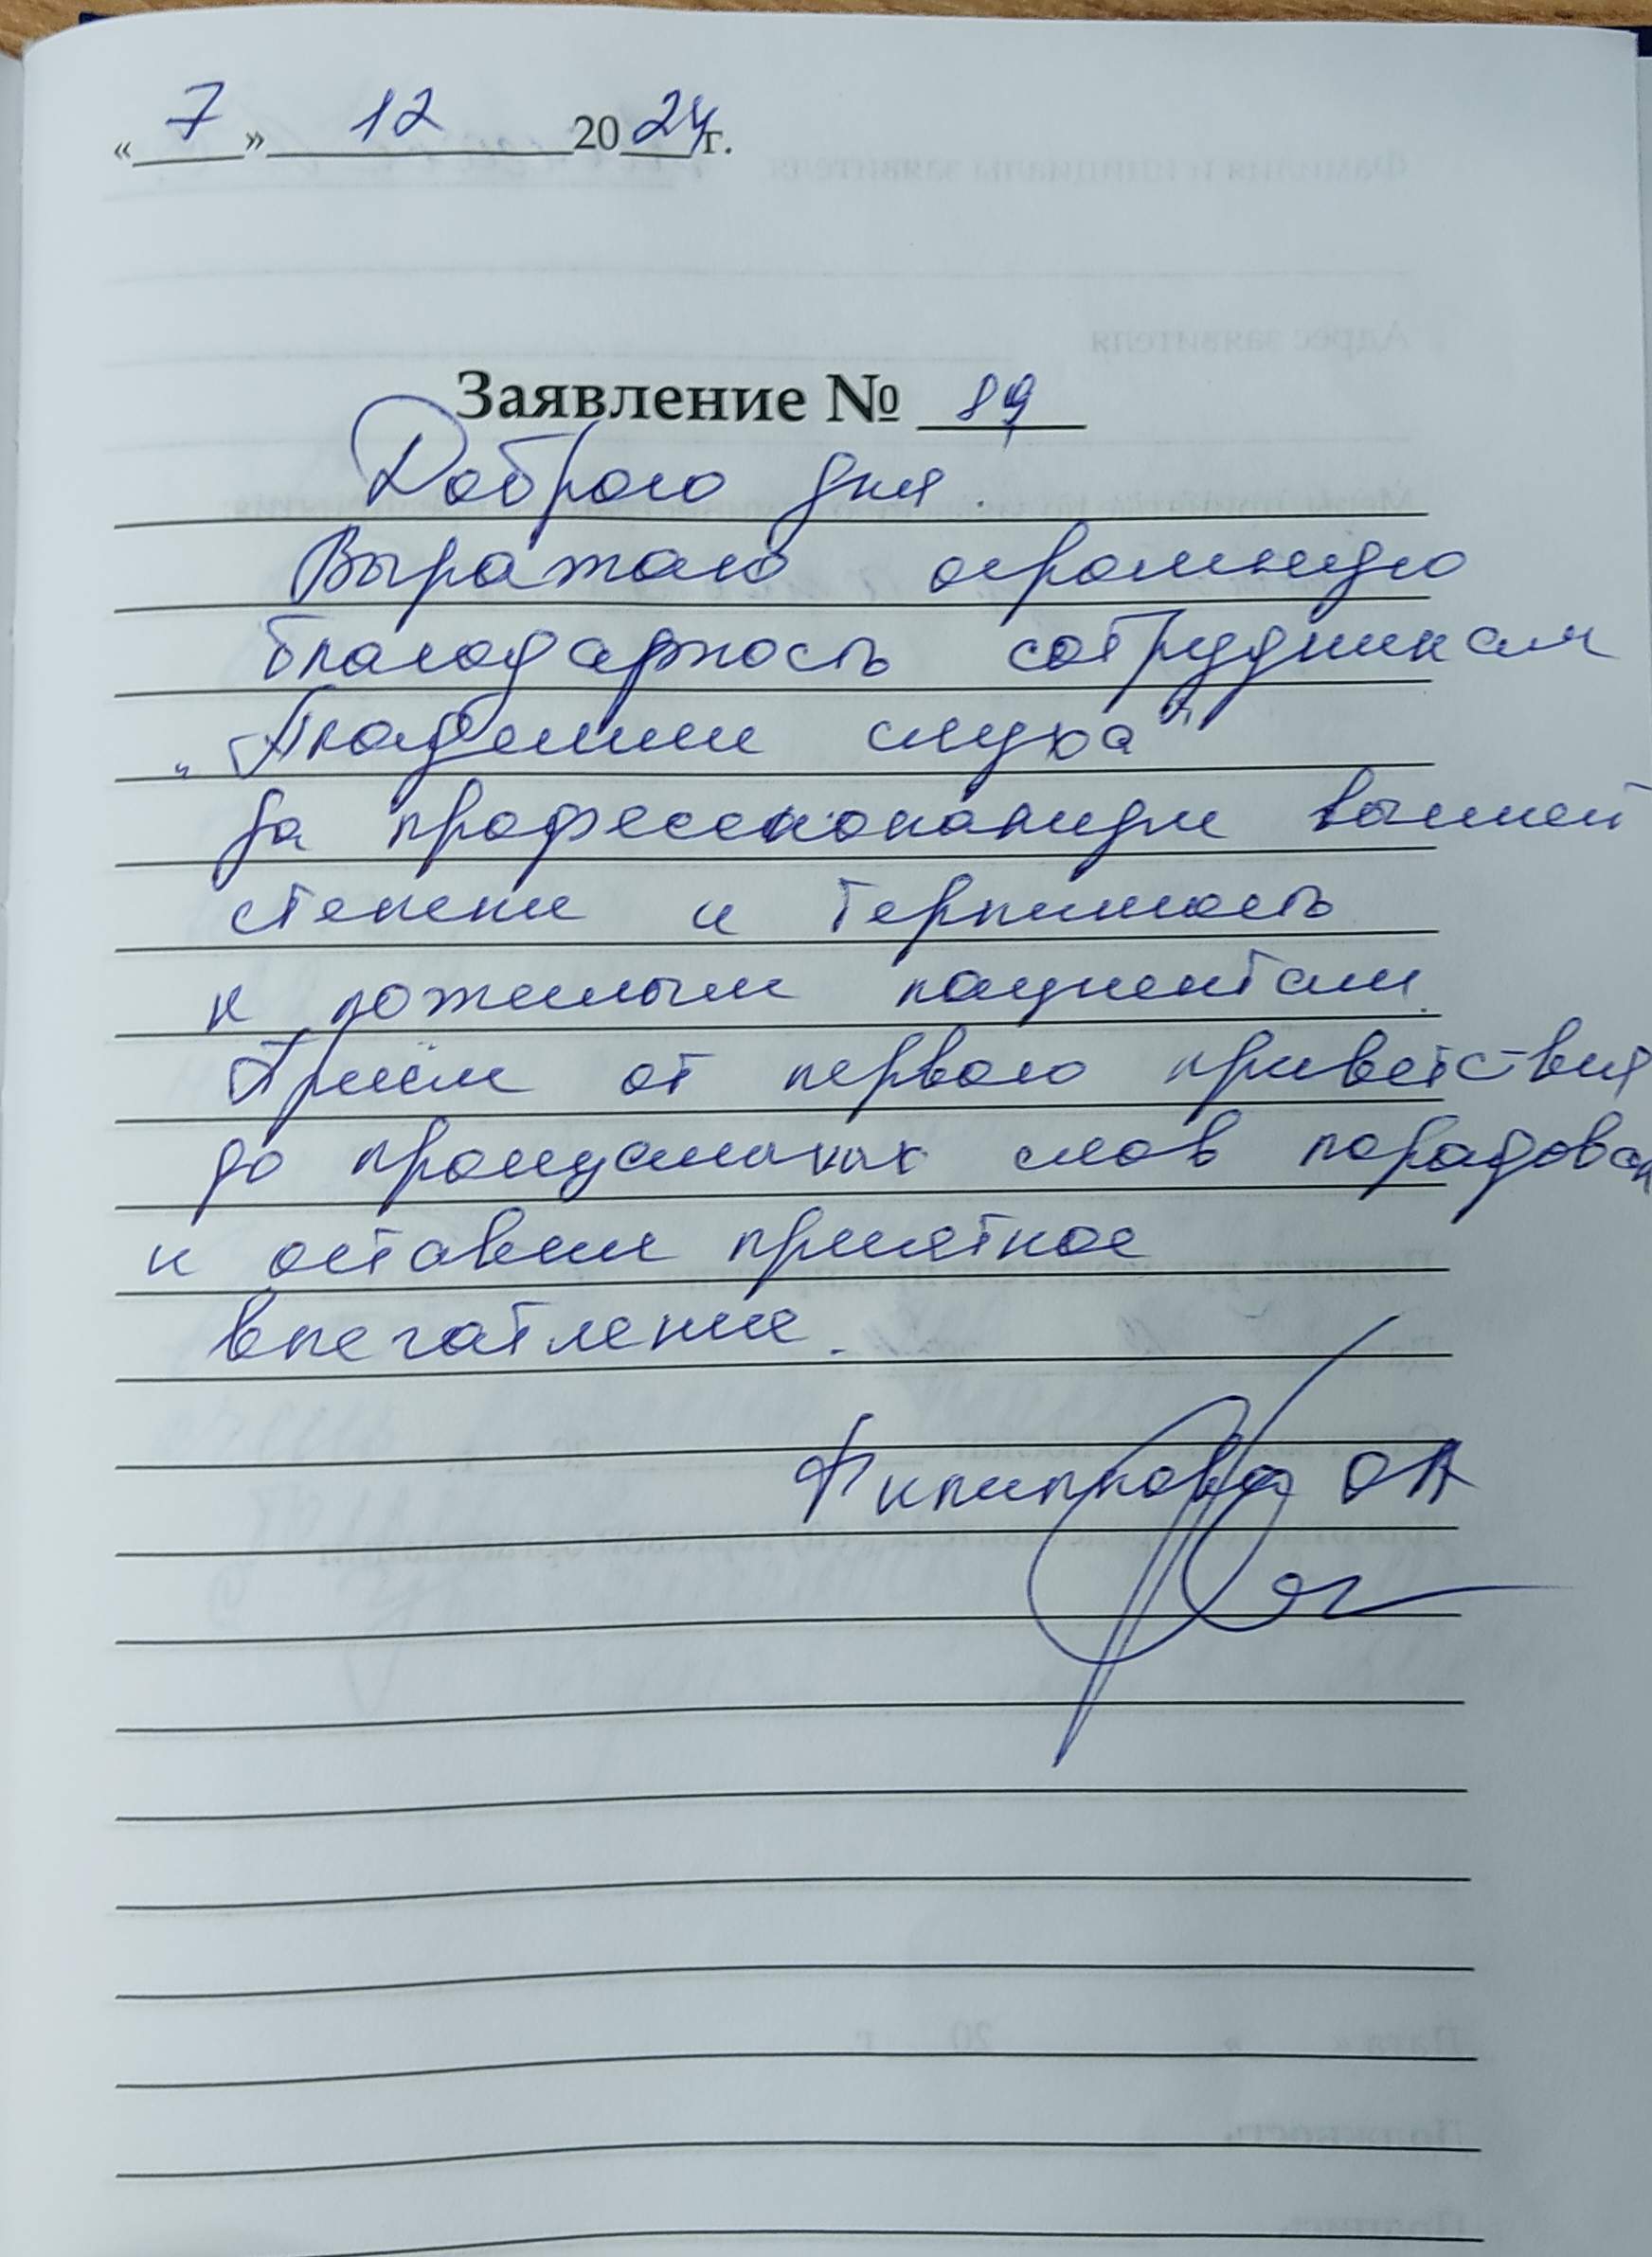 « 7 » 12 2024 г.
Заявление № 89
Доброго дня.
Выражаю огромную
благодарность сотрудникам
"Академии слуха"
за профессионализм высшей
степени и терпимость
к пожилым пациентам.
Приём от первого приветствия
до прощальных слов порадовал
и оставил приятное
впечатление.
Филиппова ОА